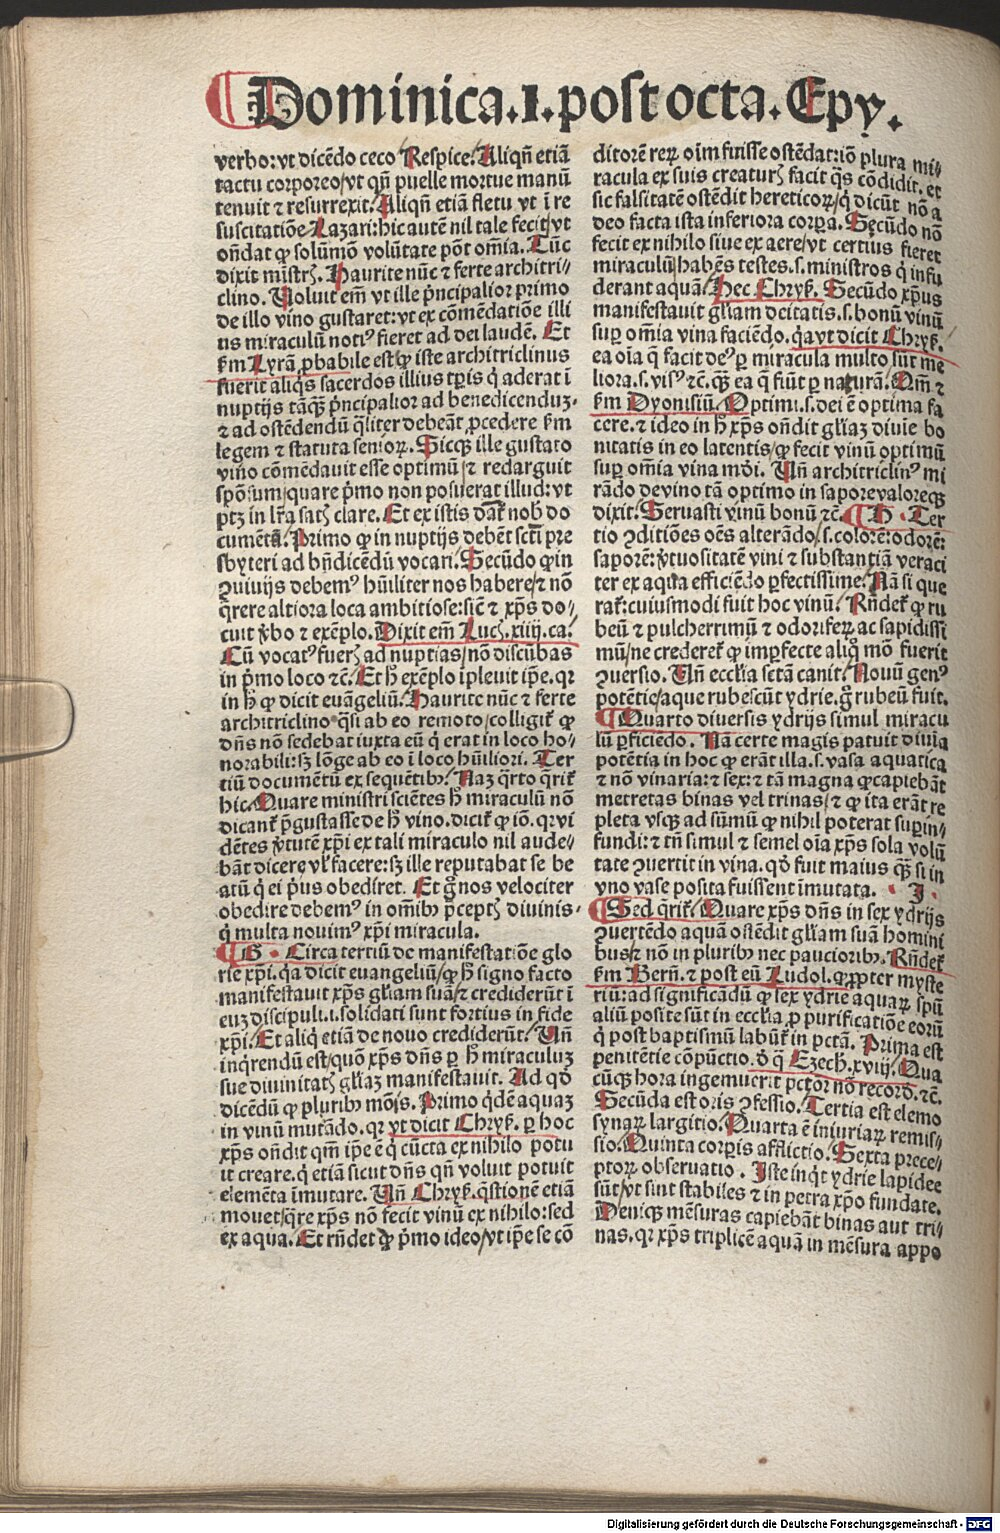 Dominica.I.post octa.Epy.
verbo: vt dicēdo ceco Respice. Aliqñ etiā
tactu corporeo/vt qñ puelle mortue manū
tenuit ⁊ resurrexit. Aliqñ etiā fletu vt ī re
suscitatiōe Lazari: hic autē nil tale fecit/vt
oñdat ꝙ solūmō volūtate pōt om̄ia. Tūc
dixit mīstris. Haurite nūc ⁊ ferte architri⸗
clino. Uoluit em̄ vt ille pͥncipalior primo
de illo vino gustaret: vt ex cōmēdatiōe illi
us miraculū notiꝰ fieret ad dei laudē. Et
ẜm Lyrā ꝓbabile est/ꝙ iste architriclinus
fuerit aliqͥs sacerdos illius tꝑis qͥ aderat ī
nuptijs tāqꝫ pͥncipalior ad benedicenduꝫ.
⁊ ad ostēdendū qͣliter debeāt ꝓcedere ẜm
legem ⁊ statuta senioꝝ. Sicqꝫ ille gustato
vino cōmēdauit esse optimū/⁊ redarguit
spōsum/quare pͥmo non posuerat illud: vt
ptꝫ in lr̄a satꝭ clare. Et ex istis dant̄ nob̄ do
cumēta. Primo ꝙ in nuptijs debēt sctī pre
sbyteri ad bn̄dicēdū vocari. Secūdo ꝙ in
ꝯuiuijs debemꝰ hūiliter nos habere/⁊ nō
qͥrere altiora loca ambitiose: sicē ⁊ xp̄s do⸗
cuit ꝟbo ⁊ exēplo. Dixit em̄ Luc̄.xiiij.ca.
Cū vocatꝰ fueris ad nuptias/nō discūbas
in pͥmo loco ⁊c̄. Et hͦ exēplo īpleuit ip̄e. qꝛ
in hͦ ꝙ dicit euāgeliū. Haurite nūc ⁊ ferte
architriclino qͣsi ab eo remoto/colligit̄ ꝙ
dn̄s nō sedebat iuxta eū qͥ erat in loco ho⸗
norabili: sꝫ lōge ab eo ī loco hūiliori. Ter
tiū documētū ex sequētibꝰ. Naꝫ qͣrto qͥrit̄
hic. Quare ministri sciētes hͦ miraculū nō
dicant̄ pͥgustasse de hͦ vino. dicit̄ ꝙ iō. qꝛ vi
dētes ꝟtutē xp̄i ex tali miraculo nil aude⸗
bāt dicere vl̓ facere: sꝫ ille reputabat se be
atū qͥ ei pͥus obediret. Et ḡ nos velociter
obedire debemꝰ in om̄ibꝰ pͥceptꝭ diuinis.
qͥ multa nouimꝰ xp̄i miracula.
G. Circa tertiū de manifestatiōe glo
rie xp̄i. qͣ dicit euangeliū/ꝙ hͦ signo facto
manifestauit xp̄s gl̓iam suā/⁊ crediderūt ī
euꝫ discipuli.i.solidati sunt fortius in fide
xp̄i. Et aliqͥ etiā de nouo crediderūt. Uñ
inqͥrendū est/quō xp̄s dn̄s ꝑ hͦ miraculuꝫ
sue diuinitatꝭ gl̓iaꝫ manifestauit. Ad qͦd
dicēdū ꝙ pluribꝰ mōis. Primo qͥdē aquaꝫ
in vinū mutādo. qꝛ vt dicit Chryẜ. ꝑ hoc
xp̄s oñdit qm̄ ip̄e ē qͥ cūcta ex nihilo potu
it creare. qͥ etiā sicut dn̄s qñ voluit potuit
elemēta īmutare. Uñ Chryẜ. qͣstionē etiā
mouet/qͣre xp̄s nō fecit vinū ex nihilo: sed
ex aqua. Et rn̄det ꝙ pͥmo ideo/vt ip̄e se cō
ditorē reꝝ oīm fuisse ostēdat: iō plura mi⸗
racula ex suis creaturꝭ facit qͣs cōdidit. et
sic falsitatē ostēdit hereticoꝝ/qͥ dicūt nō a
deo facta ista inferiora corꝑa. Secūdo nō
fecit ex nihilo siue ex aere/vt certius fieret
miraculū/habēs testes.s.ministros qͥ infu
derant aquā. Hec Chryẜ. Secūdo xp̄us
manifestauit gl̓iam deitatis.s.bonū vinū
suꝑ om̄ia vina faciēdo. qͣ vt dicit Chryẜ.
ea oīa q̄ facit deꝰ ꝑ miracula multo sūt me
liora.s.visꝰ ⁊c̄. qͣꝫ ea q̄ fiūt ꝑ naturā. Qm̄ ⁊
ẜm Dyonisiū. Optimi.s.dei ē optima fa
cere. ⁊ ideo in hͦ xp̄s oñdit gl̓iaꝫ diuīe bo
nitatis in eo latentis/ꝙ fecit vinū optimū
suꝑ om̄ia vina mōi. Uñ architriclinꝰ mi
rādo de vino tā optimo in sapore valoreqꝫ
dixit. Seruasti vinū bonū ⁊c̄. H. Ter
tio ꝯditiōes oēs alterādo/.s.colorē: odorē:
saporē: ꝟtuositatē vini ⁊ substantiā veraci
ter ex aqua efficiēdo ꝑfectissime. Nā si que
rat̄: cuiusmodi fuit hoc vinū. Rn̄det̄ ꝙ ru
beū ⁊ pulcherrimū ⁊ odoriferꝝ ac sapidissi
mū/ne crederet̄ ꝙ imꝑfecte aliqͦ mō fuerit
ꝯuersio. Uñ eccl̓ia sctā canit. Nouū genꝰ
potētie/aque rubescūt ydrie. gͦ rubeū fuit.
Quarto diuersis ydrijs simul miracu
lū ꝑficiēdo. Nā certe magis patuit diuīa
potētia in hoc ꝙ erāt illa.s. vasa aquatica
⁊ nō vinaria: ⁊ sex: ⁊ tā magna ꝙ capiebāt
metretas binas vel trinas/⁊ ꝙ ita erāt re
pleta vsqꝫ ad sūmū ꝙ nihil poterat suꝑin⸗
fundi: ⁊ tn̄ simul ⁊ semel oīa xp̄s sola volū
tate ꝯuertit in vina. qͦd fuit maius qͣꝫ si in
vno vase posita fuissent īmutata. I.
Sed qͥrit̄. Quare xp̄s dn̄s in sex ydrijs
ꝯuertēdo aquā ostēdit gl̓iam suā homini
bus/⁊ nō in pluribꝰ nec paucioribꝰ. Rn̄det̄
ẜm Bern̄. ⁊ post eū Ludol. ꝙ ꝓpter myste
riū: ad significādū ꝙ sex ydrie aquaꝝ spūa
aliū posite sūt in eccl̓ia ꝓ purificatiōe eorū
qͥ post baptismū labūt̄ in pctā. Prima est
penitētie cōpūctio. d̓ q̄ Ezech̄.xviij. Qua
cūqꝫ hora ingemuerit pctōr nō record. ⁊c̄.
Secūda est oris ꝯfessio. Tertia est elemo
synaꝝ largitio. Quarta ē iniuriaꝝ remis⸗
sio. Quinta corꝑis afflictio. Sexta prece⸗
ptoꝝ obseruatio. Iste inqͥt ydrie lapidee
sūt/vt sint stabiles ⁊ in petra xp̄o fundate.
Deniqꝫ mēsuras capiebāt binas aut tri⸗
nas. qꝛ xp̄s triplicē aquā in mēsura appo
Digitalisierung gefördert durch die Deutsche Forschungsgemeinschaft - DFG